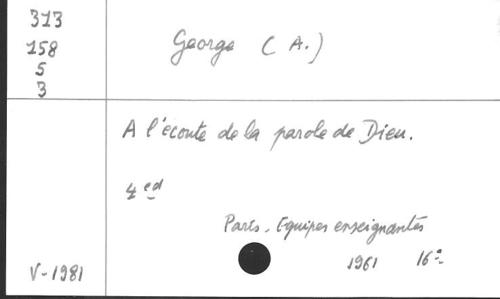 313
158
5
3
George (A.)
A l'écoute de la parole de Dieu.
4 ed
Paris. Equipes enseignantes
1961 16°
V-1981